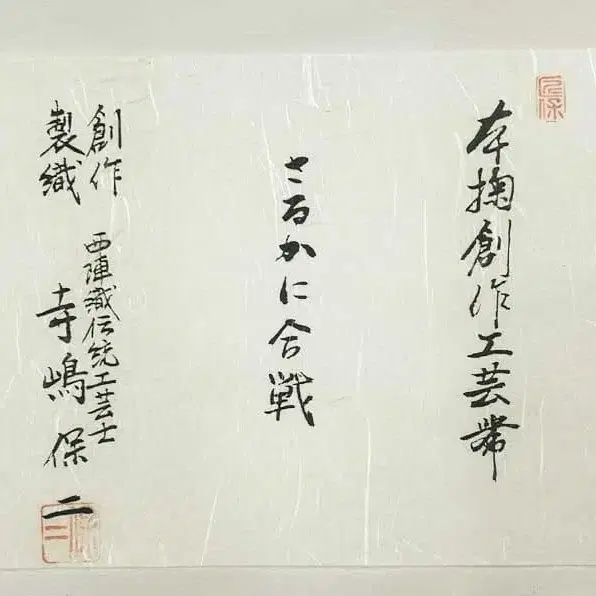 本掬創作工芸帯
さるかに合戦
創作
製織
西陣織伝統工芸士
寺嶋保二